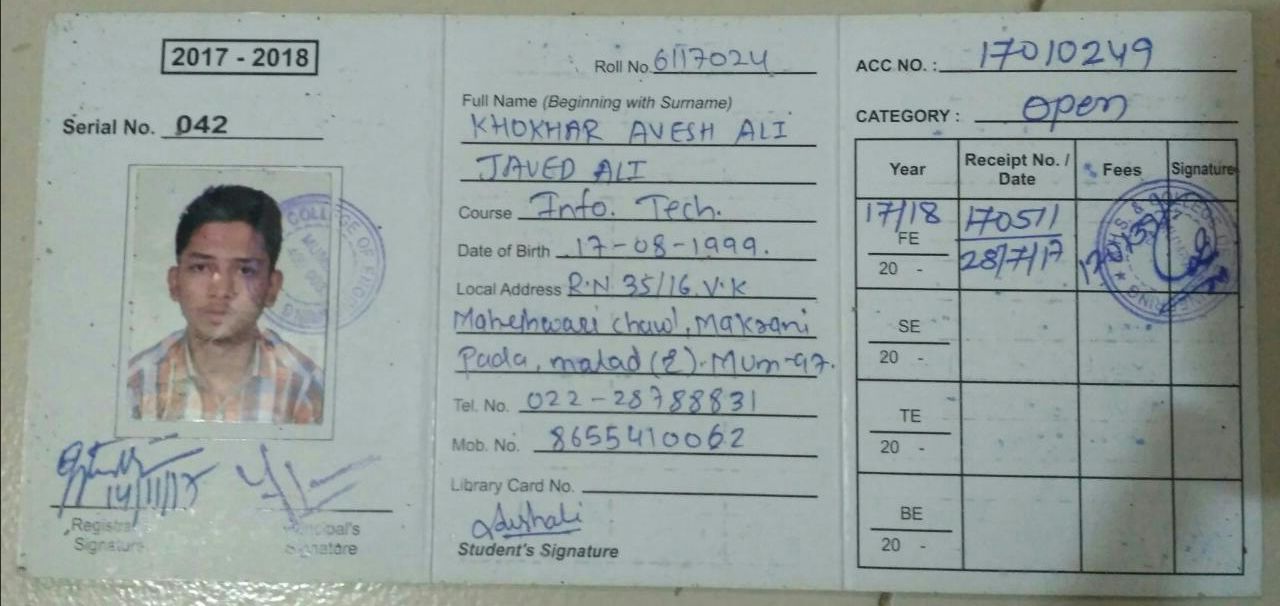 2017 - 2018
Serial No. 042
COLLEGE OF ENGINEERING
14/11/17
Registrar
Signature
Principal's
Signature
Roll No. 6117024
Full Name (Beginning with Surname)
KHOKHAR AVESH ALI
JAVED ALI
Course Info. Tech.
Date of Birth 17-08-1999.
Local Address R.N. 35/16. V.K
Maheshwari chawl, Makrani
Pada, malad (E). Mum-97.
Tel. No. 022-28788831
Mob. No. 8655410062
Library Card No.
Student's Signature
ACC NO. : 17010249
CATEGORY : open
Year Receipt No. / Date Fees Signature
17/18 170511
FE 28/7/17
20 -
SE
20 -
TE
20 -
BE
20 -